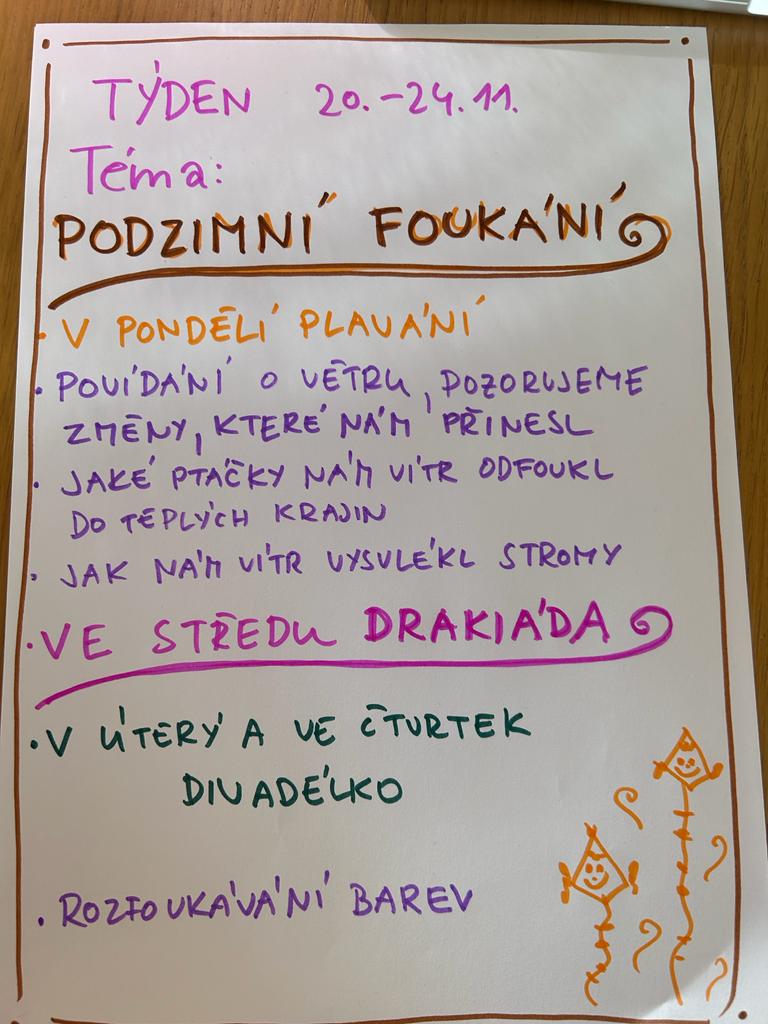 TÝDEN 20.-24.11.
Téma:
PODZIMNÍ FOUKÁNÍ
• V PONDĚLÍ PLAVÁNÍ
• POVÍDÁNÍ O VĚTRU, POZORUJEME
ZMĚNY, KTERÉ NÁM PŘINESL
• JAKÉ PTÁČKY NÁM VÍTR ODFOUKL
DO TEPLÝCH KRAJIN
• JAK NÁM VÍTR VYSVLÉKL STROMY
• VE STŘEDU DRAKIÁDA
• V ÚTERÝ A VE ČTVRTEK
DIVADÉLKO
• ROZFOUKÁVÁNÍ BAREV